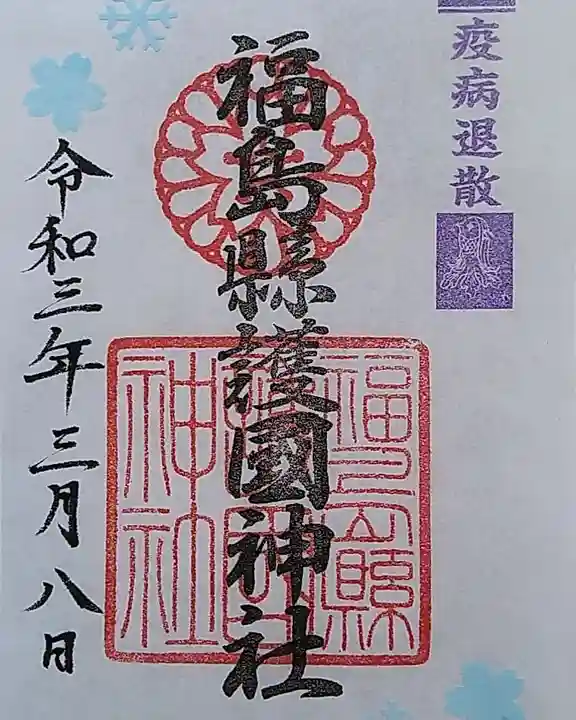 疫病退散
福島縣護國神社
福島縣護國神社
令和三年三月八日